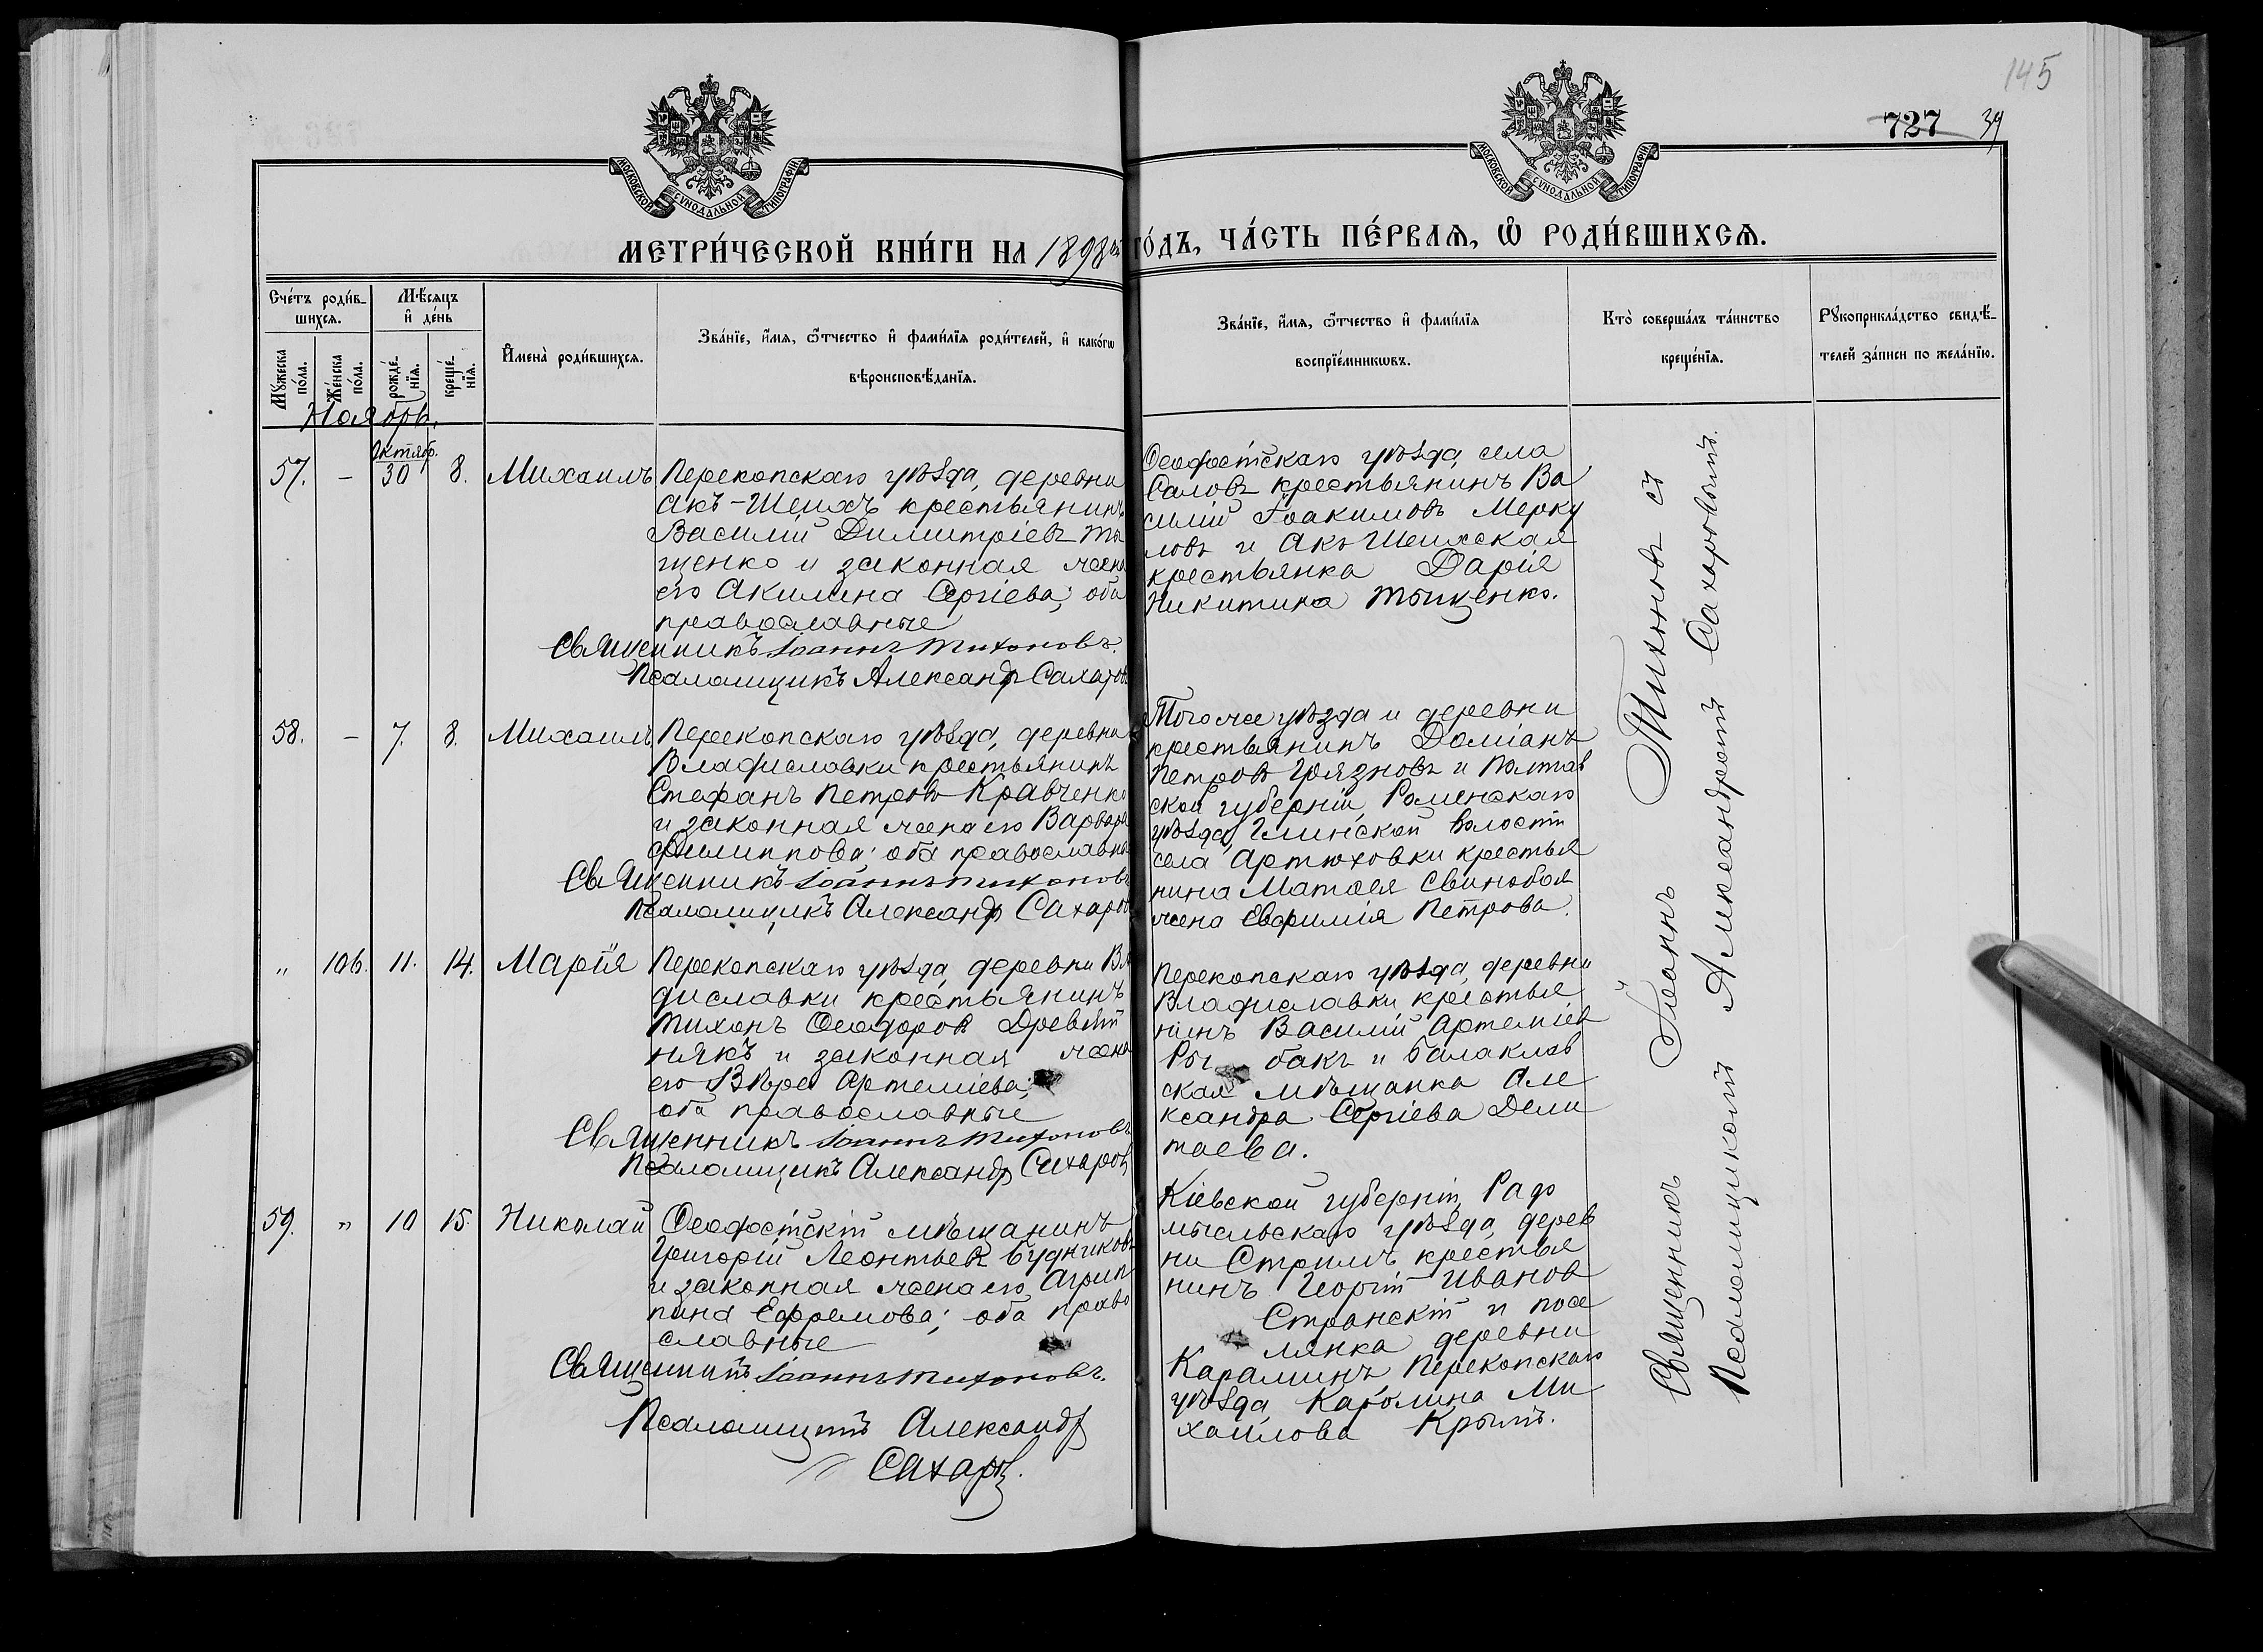 145
727 39
МОСКОВСКОЙ СѴНОДАЛЬНОЙ ТИПОГРАФІИ
МОСКОВСКОЙ СѴНОДАЛЬНОЙ ТИПОГРАФІИ
МЕТРИ́ЧЕСКОЙ КНИ́ГИ НА 1898й ГО́ДЪ, ЧА́СТЬ ПЕ́РВАѦ, Ѽ РОДИ́ВШИХСѦ.
Сче́тъ роди́в-
шихсѧ.
Мꙋжеска по́ла.
Же́нска по́ла.
Мѣ́сѧцъ и҆ де́нь
рожде́-
нїѧ.
креще́-
нїѧ.
И҆мена̀ роди́вшихсѧ.
Зва́нїе, и҆́мѧ, ѻ҆́тчество и҆ фами́лїѧ роди́телей, и҆ како́гѡ
вѣроисповѣ́данїѧ.
Зва́нїе, и҆́мѧ, ѻ҆́тчество и҆ фами́лїѧ
воспрїе́мникѡвъ.
Кто̀ соверша́лъ та́инство
креще́нїѧ.
Рꙋкоприкла́дство свидѣ́-
телей за́писи по жела́нїю.
Ноябрь.
57. – Октябр. 30 8. Михаилъ
Перекопскаго уѣзда, деревни
Акъ-Шеихъ крестьянинъ
Василій Димитріевъ Ты
щенко и законная жена
его Акилина Сергіева; оба
православные
Священникъ Іоаннъ Тихоновъ.
Псаломщикъ Александръ Сахаровъ
Ѳеодосійскаго уѣзда, села
Саловъ крестьянинъ Ва
силій Іоакимовъ Мерку
ловъ и Акъ Шеихская
крестьянка Дарія
Никитина Тыщенко.
58. – 7. 8. Михаилъ
Перекопскаго уѣзда, деревни
Владиславки крестьянинъ
Стефанъ Петровъ Кравченко
и законная жена его Варвара
Филиппова; оба православные
Священникъ Іоаннъ Тихоновъ
Псаломщикъ Александръ Сахаровъ
Того же уѣзда и деревни
крестьянинъ Даміанъ
Петровъ Грязновъ и Полтав
ской губерніи, Роменскаго
уѣзда, Глинской волости
села Артюховки крестья
нина Матѳея Свинобоя
жена Евфимія Петрова.
„ 106. 11. 14. Марія
Перекопскаго уѣзда, деревни Вла
диславки крестьянинъ
Тихонъ Ѳеодоровъ Древет
някъ и законная жена
его Вѣра Артеміева;
оба православные
Священникъ Іоаннъ Тихоновъ
Псаломщикъ Александръ Сахаровъ
Перекопскаго уѣзда, деревни
Владиславки, крестья
нинъ Василій Артеміев
Ры бакъ и Балаклав
ская мѣщанка Але
ксандра Сергіева Дели
таева.
59. „ 10 15. Николай
Ѳеодосійскій мѣщанинъ
Григорій Леонтьевъ Будниковъ
и законная жена его Агрип
пина Ефремова; оба право
славные
Священникъ Іоаннъ Тихоновъ.
Псаломщикъ Александръ
Сахаровъ.
Кіевской губерніи, Радо
мысльскаго уѣзда, дерев
ни крестья
нинъ Георгій Иванов
Странскій и посе
лянка деревни
Караминъ Перекопскаго
уѣзда, Каролина Ми
хаилова Крымъ.
Священникъ Іоаннъ Тихоновъ съ
Псаломщикомъ Александромъ Сахаровымъ.